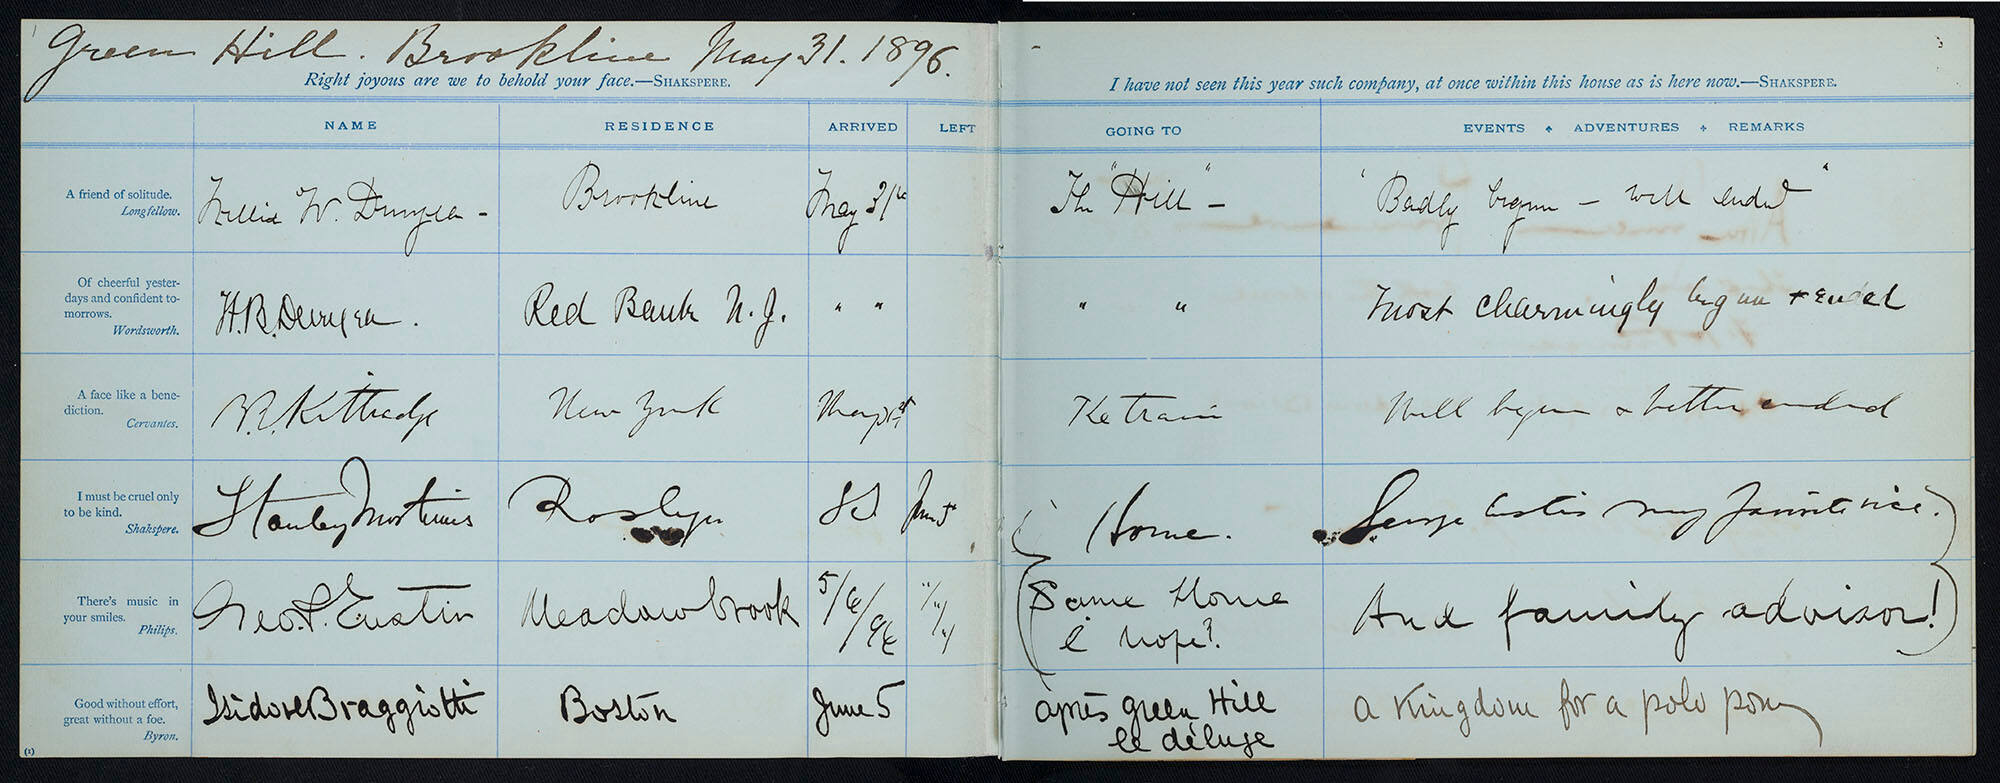 Green Hill. Brookline May 31. 1896.
Right joyous are we to behold your face.—SHAKSPERE.
I have not seen this year such company, at once within this house as is here now.—SHAKSPERE.
NAME RESIDENCE ARRIVED LEFT GOING TO EVENTS ADVENTURES REMARKS
A friend of solitude.
Longfellow.
W. Brookline May 31st The "Hill" - "Badly begun - well ended"
Of cheerful yester-
days and confident to-
morrows.
Wordsworth.
H.B. Red Bank N.J. " " " " Most charmingly begun + ended
A face like a bene-
diction.
Cervantes.
Kittredge New York May 31st Well begun & better ended
I must be cruel only
to be kind.
Shakspere.
Stanley Mortimer Roslyn June 5th Home. my favorite vice.)
There's music in
your smiles.
Philips.
Geo. P. Eustis Meadowbrook 5/6/96 "/"/" (Same Home And family advisor!)
I hope?
Good without effort,
great without a foe.
Byron.
Isidore Braggiotti Boston June 5 après Green Hill a Kingdom for a polo pony
le déluge
(1)